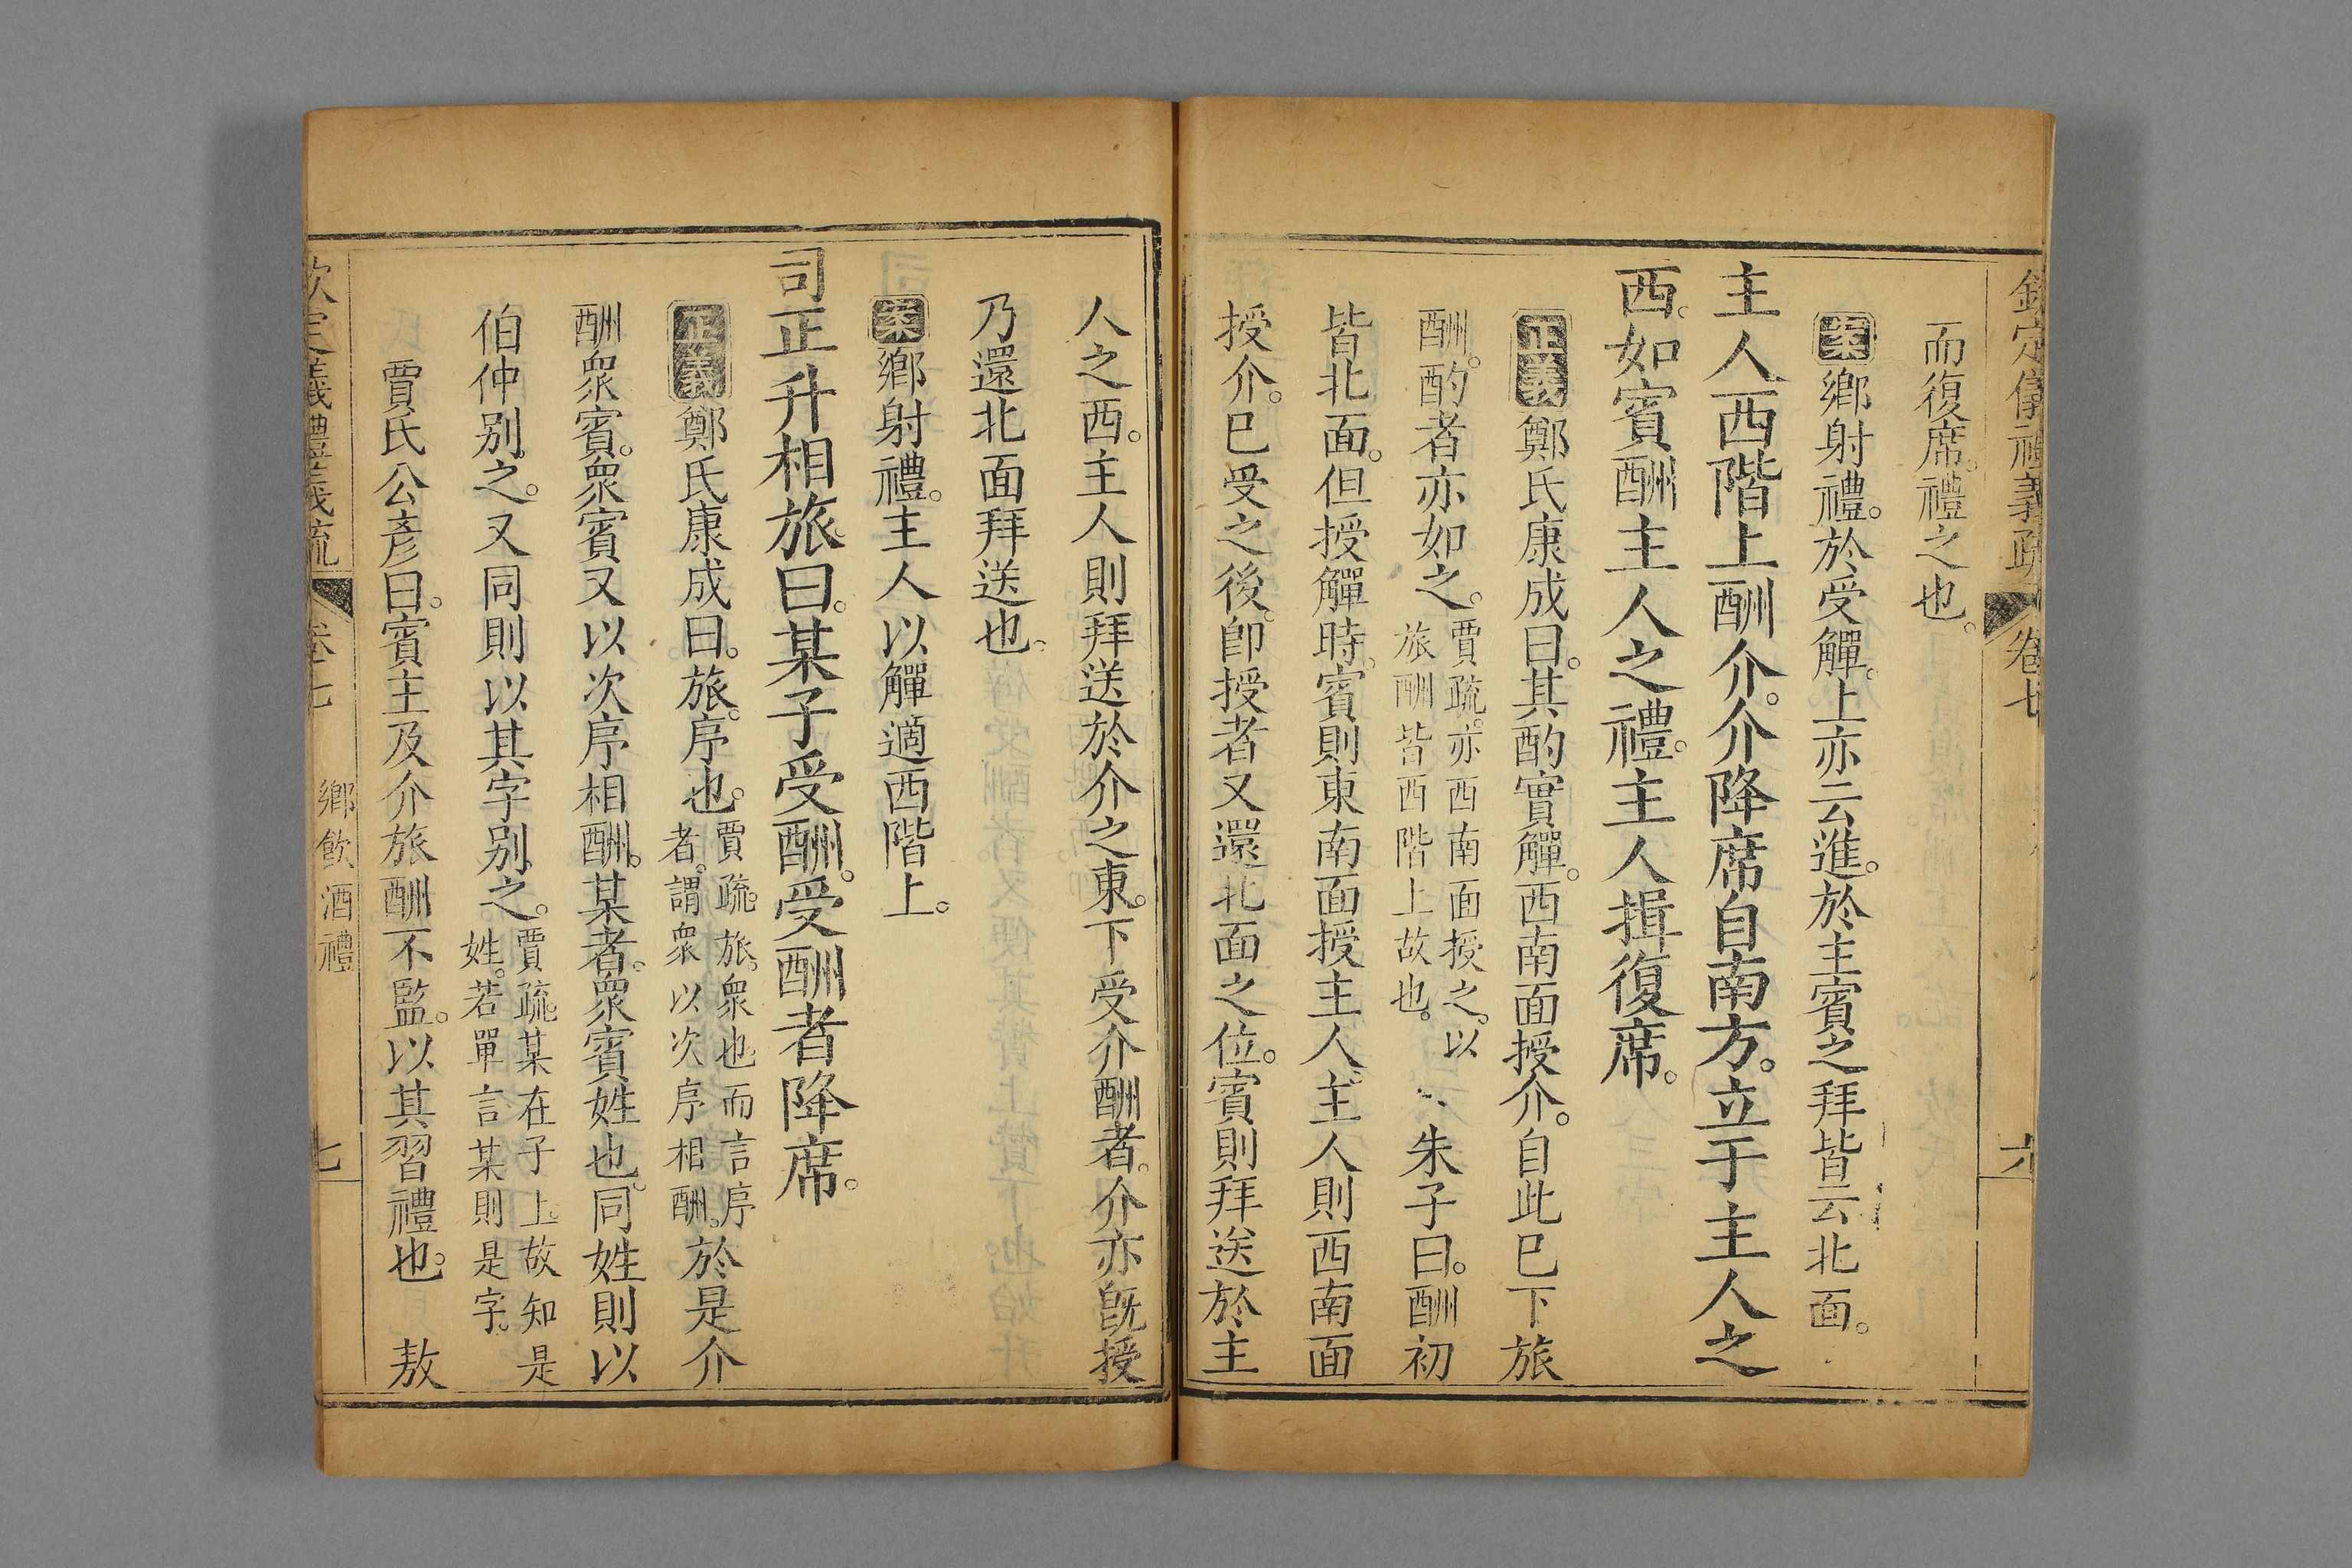 欽定儀禮義疏 卷七 六
而復席。禮之也。
案鄉射禮。於受觶。上亦云進。於主賓之拜皆云北面。
主人西階上酬介。介降席自南方。立于主人之
西。如賓酬主人之禮。主人揖復席。
正義鄭氏康成曰。其酌實觶。西南面授介。自此巳下旅
酬。酌者亦如之。賈疏。亦西南面授之。以旅酬皆西階上故也。 朱子曰。酬初
皆北面。但授觶時。賓則東南面授主人。主人則西南面
授介。巳受之後。卽授者又還北面之位。賓則拜送於主
人之西。主人則拜送於介之東。下受介酬者。介亦旣授
乃還北面拜送也。
案鄉射禮。主人以觶適西階上。
司正升相旅。曰。某子受酬。受酬者降席。
正義鄭氏康成曰。旅。序也。賈疏。旅。衆也。而言序者。謂衆以次序相酬。於是介
酬衆賓。衆賓又以次序相酬。某者。衆賓姓也。同姓則以
伯仲别之。又同則以其字别之。賈疏。某在子上。故知是姓。若單言某則是字。
賈氏公彥曰。賓主及介旅酬不監。以其習禮也。 敖
欽定儀禮義疏 卷七 鄉飮酒禮 七